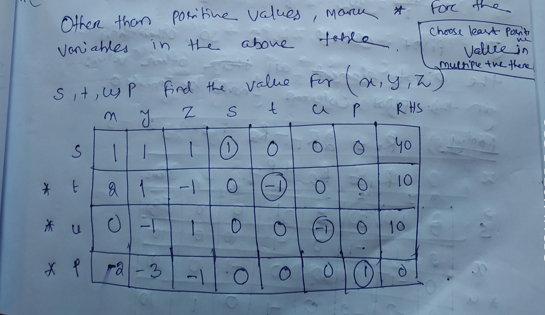 Other than positive values, mark * for the
variables in the above table.
choose least positive
value in
multiple +ve there
S, t, u, P Find the value for (x, y, z)
x y z S t u P RHS
S 1 1 1 1 0 0 0 40
* t 2 1 -1 0 -1 0 0 10
* u 0 -1 1 0 0 -1 0 10
* P -2 -3 -1 0 0 0 1 0